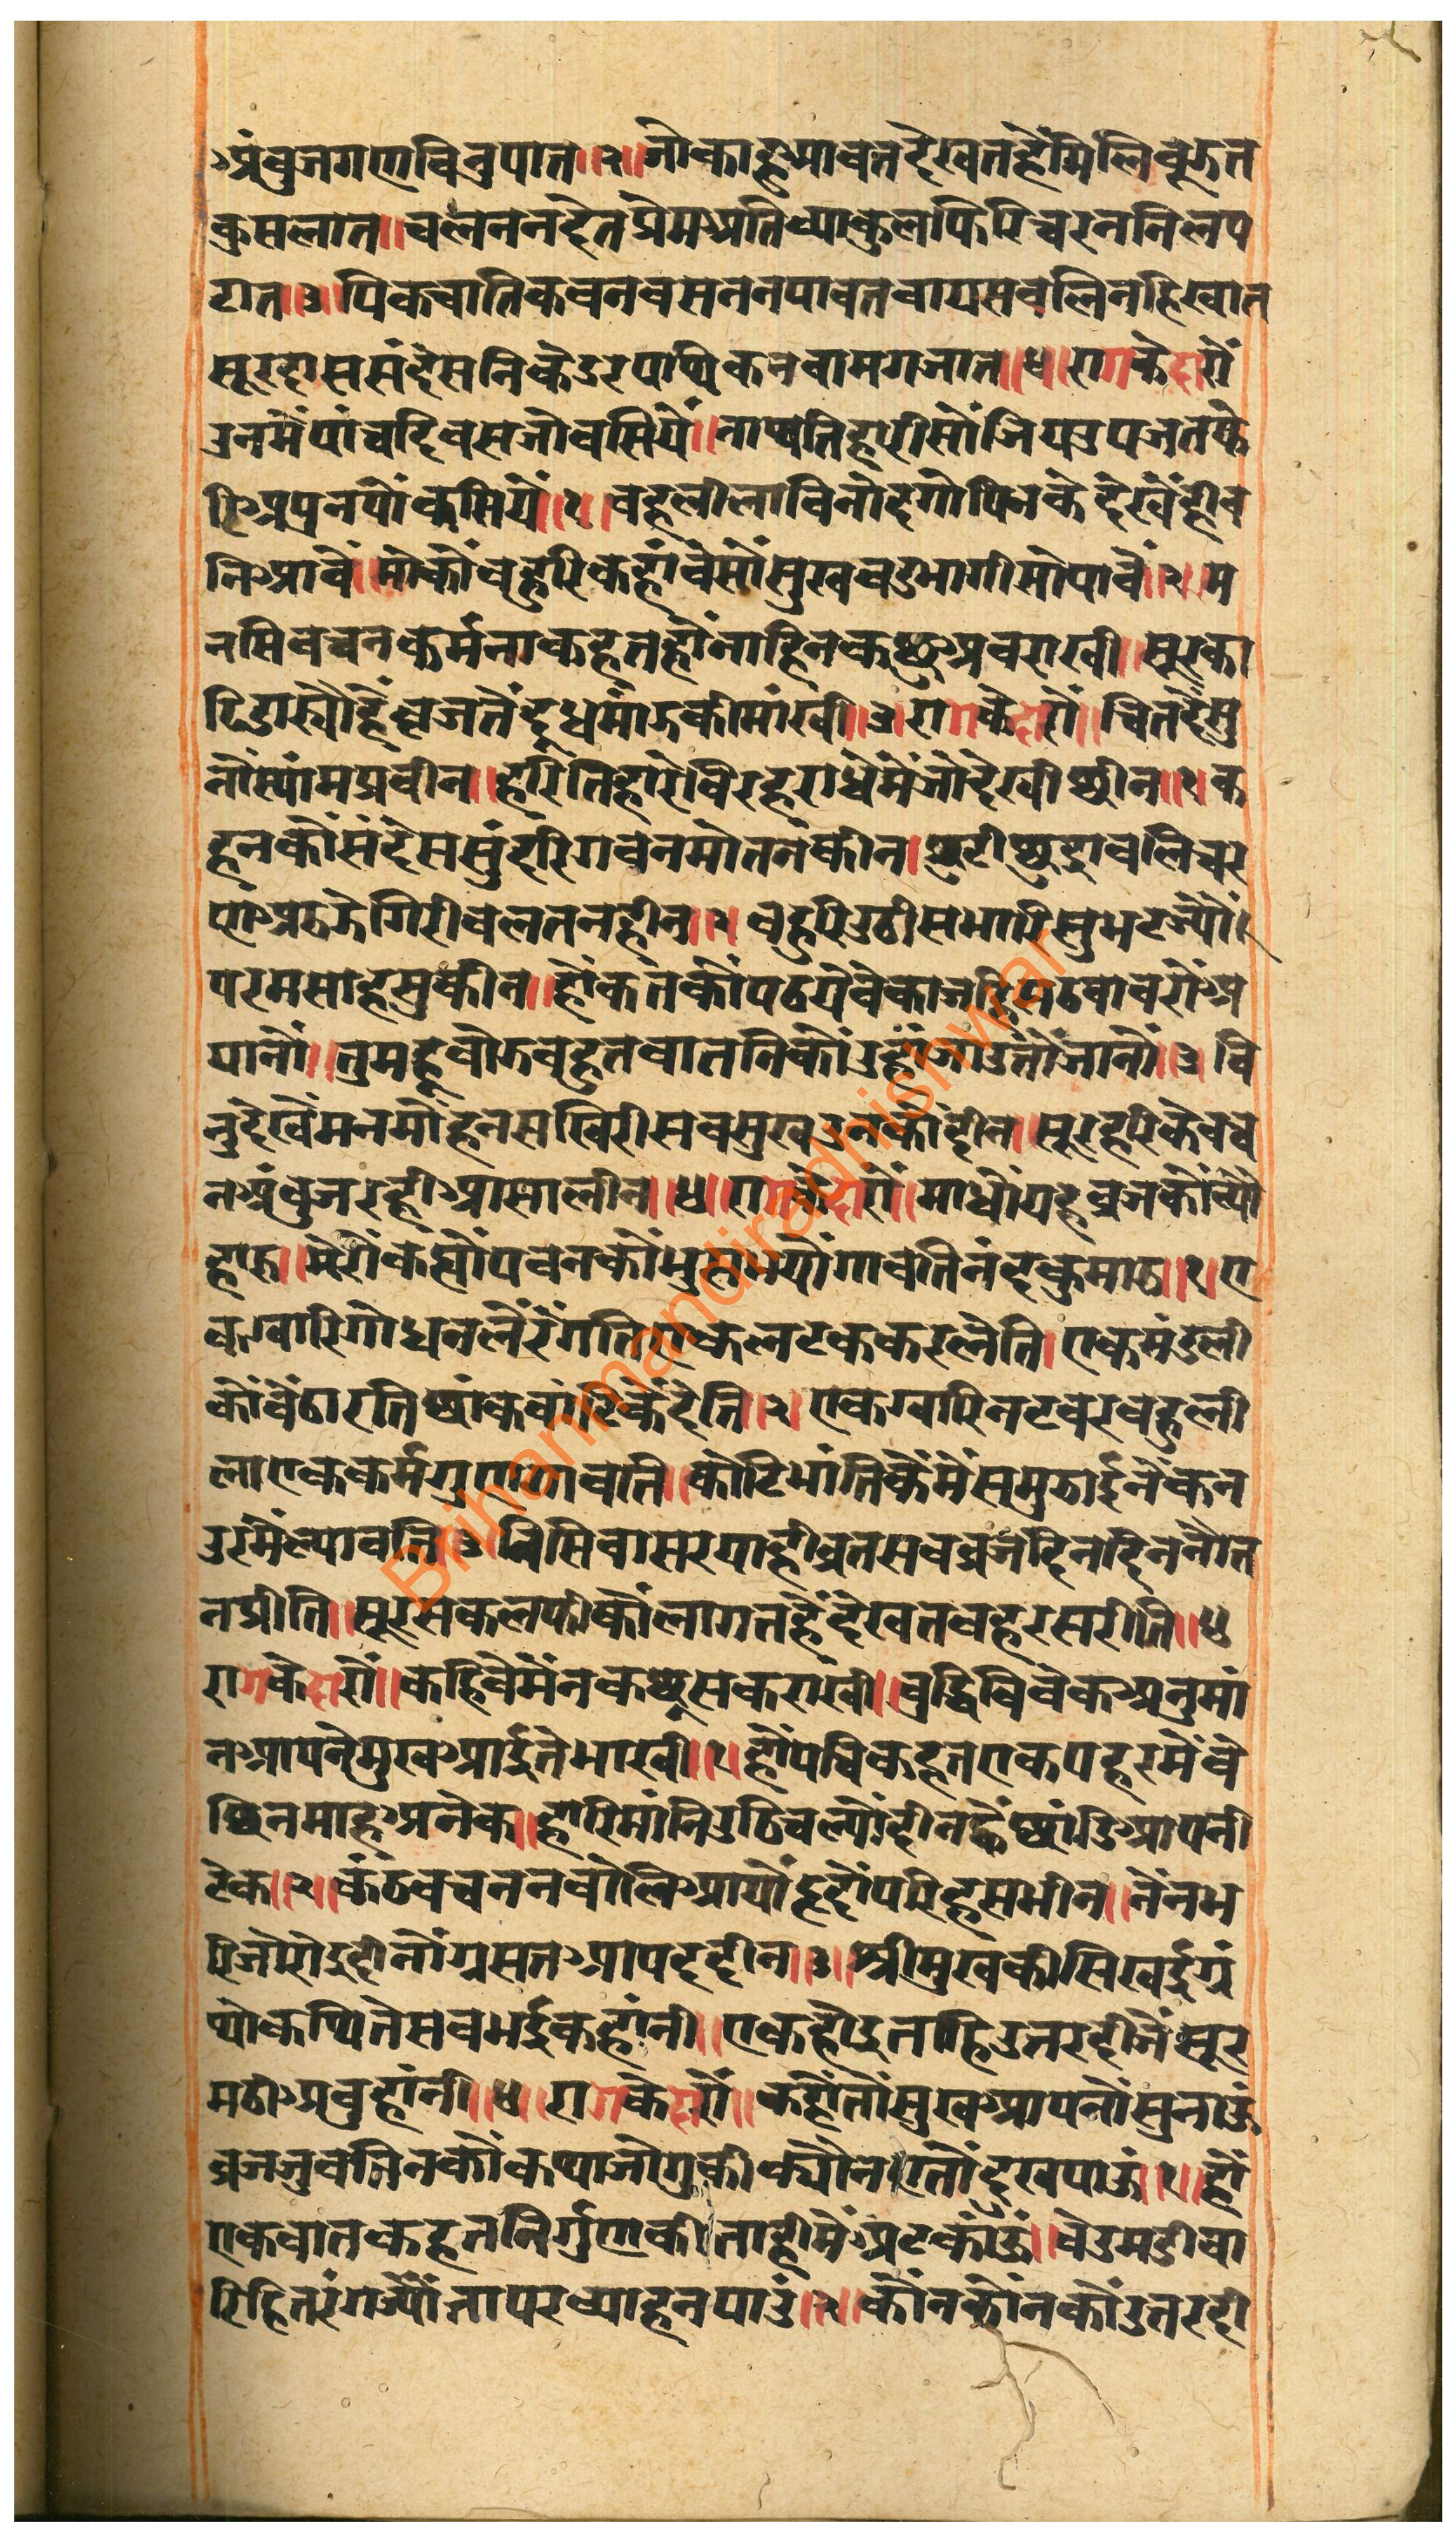 अंबुजगणविनुपात॥२॥जौकाहूआवतदेखतहैंमिलिबूझत
कुसलात॥चलननदेतप्रेमअतिव्याकुलफिरिचरननिलप
टात॥३॥पिकचातिकवनबसननपावतवायसबलिनहिखात
सूरदाससंदेसनिकेडरपाथिकनवामगजात॥४॥रागकेदारौं
उनमैंपांचदिवसजोबसियैं॥नाथतिहारीसौंजियउपजतफे
रिअप्रनपौंकसियैं॥१॥वहलीलाविनोदगोपिनकेदेखैंहीब
निआवैं॥मोकौंबहुरिकहांवैसौंसुखबडभागीसोपावैं॥२॥म
नसिबचनकर्मनाकहतहौंनाहिनकछूअबराखी॥सूरका
ढिडाखौहैंब्रजतैंदूधमांझकीमांखी॥३॥रागकेदारौं॥चितदैसु
नौंस्यांमप्रवीन॥हरितिहारेबिरहराधेमैंजोदेखीछीन॥१॥क
हनकौंसंदेससुंदरिगवनमोतनकीन॥छुटीछुद्रावलिचर
णअरुझेगिरीबलतनहीन॥२॥बहुरिउठीसभारिसुभटज्यौं।
परमसाहसुकीन॥हौंकतकौंपठयेवेकाजहिसठबाबरौंअ
यानौं॥तुमहूबोझबहुतबातनिकौंउहांजाउतौंजानौं॥३॥बि
नुदेखैंमनमोहनसखिरीसबसुखउनकौंदीन॥सूरहरिकेचर
नअंबुजरहीआसालीन॥४॥रागकेदारौं॥माधौंयहब्रजकौंब्यौ
हारु॥मेरौंकह्यौंपवनकौंभुसभयौंगावतिनंदकुमारु॥१॥ए
कग्वारिगोधनलैंरैंगतिएकलटककरलेति।एकमंडली
कौंबैठारतिछांकबांटिकैंदेति॥२॥एकग्वारिनटवरबहुली
लाएककर्मगुणगावति॥कोटिभांतिकैंमैंसमुझाईनैंकन
उरमैंल्यावति॥३॥निसिवासरयाहीब्रतसबब्रजदिनदिननौत
नप्रीति॥सूरसकलफीकौंलागतहैंदेखतवहरसरीति॥४॥
रागकेदारौं॥कहिवेमैंनकछूसकराखी॥बुद्धिबिवेकअनुमां
नआपनेमुखआईतेभाखी॥१॥हौंपचिकहतएकपहरमेंवे
छिनमाहअनेक॥हारिमांनिउठिचल्यौंदीनह्वैछांडिआपनी
टेक॥२॥कंठबचननबोलिआयौंहृदौंपरिहसभीन॥नैंनभ
रिजोरोइदीनौंग्रसतआपददीन॥३॥श्रीमुखकीसिखईग्रं
थोकथितेसबभईकहांनी॥एकहोइताहिउतरदीजैंसूर
मठीअबुहांनी॥४॥रागकेदारौं॥कहौंतौंसुखआपनौंसुनाऊं
ब्रजजुवतिनकौंकथाजोगुकीक्यौनएतौंदुखपाऊं॥१॥हौं
एकबातकहतनिर्गुणकीताहीमेंअटकांऊं॥वेउमडीबा
रिहितरंगज्यौंतापरथाहनपाउं॥२॥कौंनकौंनकौंउतरदी
Brihanmandiradhishwar